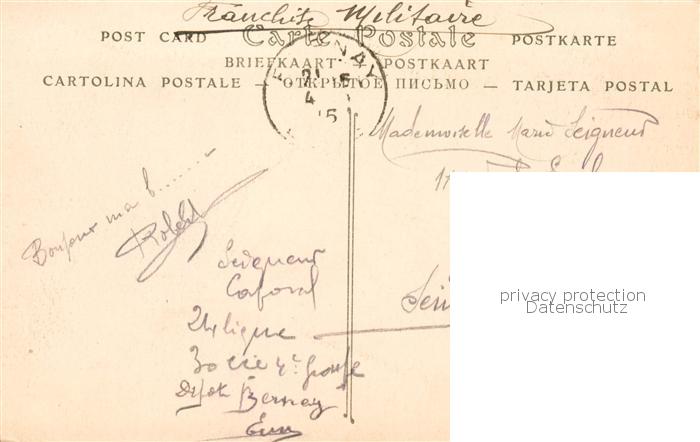 Franchise Militaire
POST CARD Carte Postale POSTKARTE
BRIEFKAART — POSTKAART
CARTOLINA POSTALE — ОТКРЫТОЕ ПИСЬМО — TARJETA POSTAL
NAY
21 5
4
15
Mademoiselle Marie Seigneur
Bonjour ma b........
Robert
Seigneur
Caporal
24 ligne
30 cie 4e groupe
Dépôt Bernay
Eure
privacy protection
Datenschutz